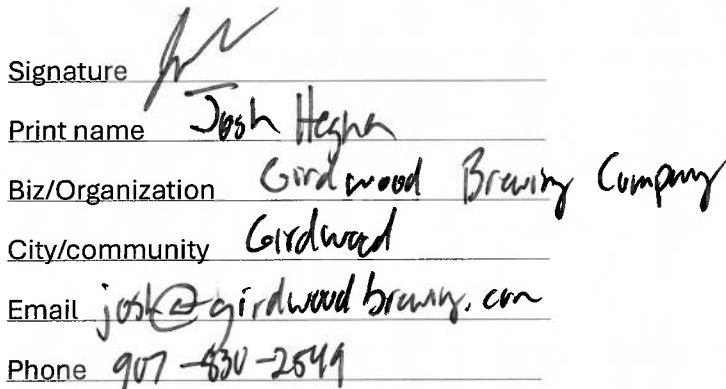 Signature
Print name Josh Hegna
Biz/Organization Girdwood Brewing Company
City/community Girdwood
Email josh@girdwoodbrewing.com
Phone 907-830-2549